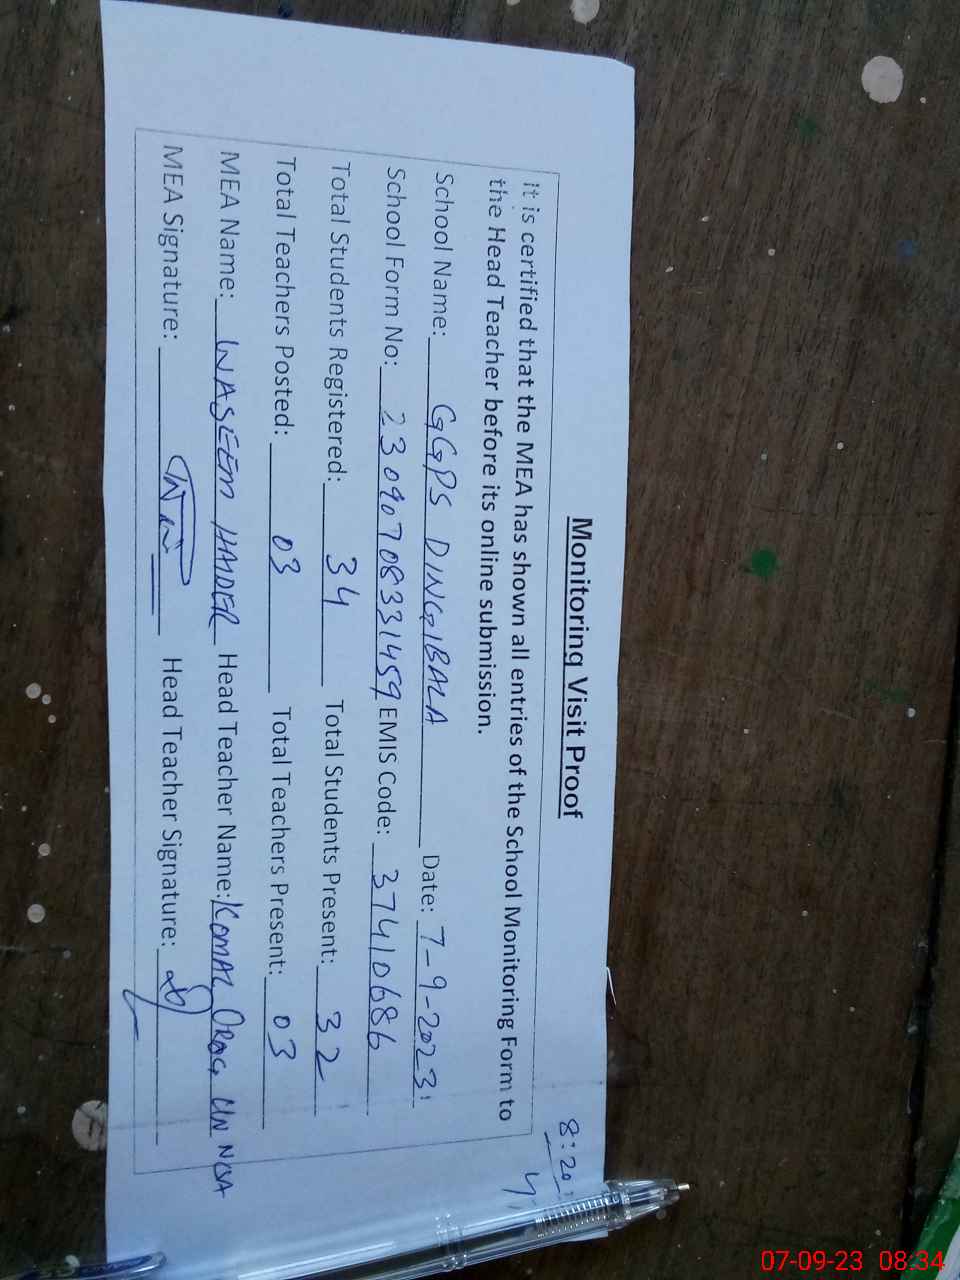 8:20
4
Monitoring Visit Proof
it is certified that the MEA has shown all entries of the School Monitoring Form to
the Head Teacher before its online submission.
School Name: GGPS DINGIBALA Date: 7-9-2023
School Form No: 23090708331459 EMIS Code: 37410686
Total Students Registered: 34 Total Students Present: 32
Total Teachers Posted: 03 Total Teachers Present: 03
MEA Name: WASEEM HAIDER Head Teacher Name: KOMAL UN NISA
MEA Signature: Head Teacher Signature:
07-09-23 08:34